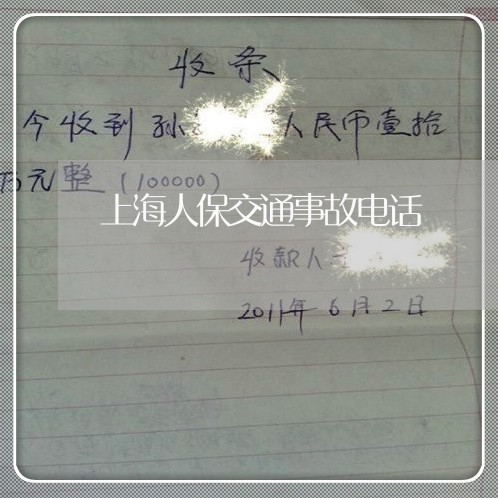 收条
今收到孙 人民币壹拾
万元整(100000)
上海人保交通事故电话
收款人
2011年6月2日